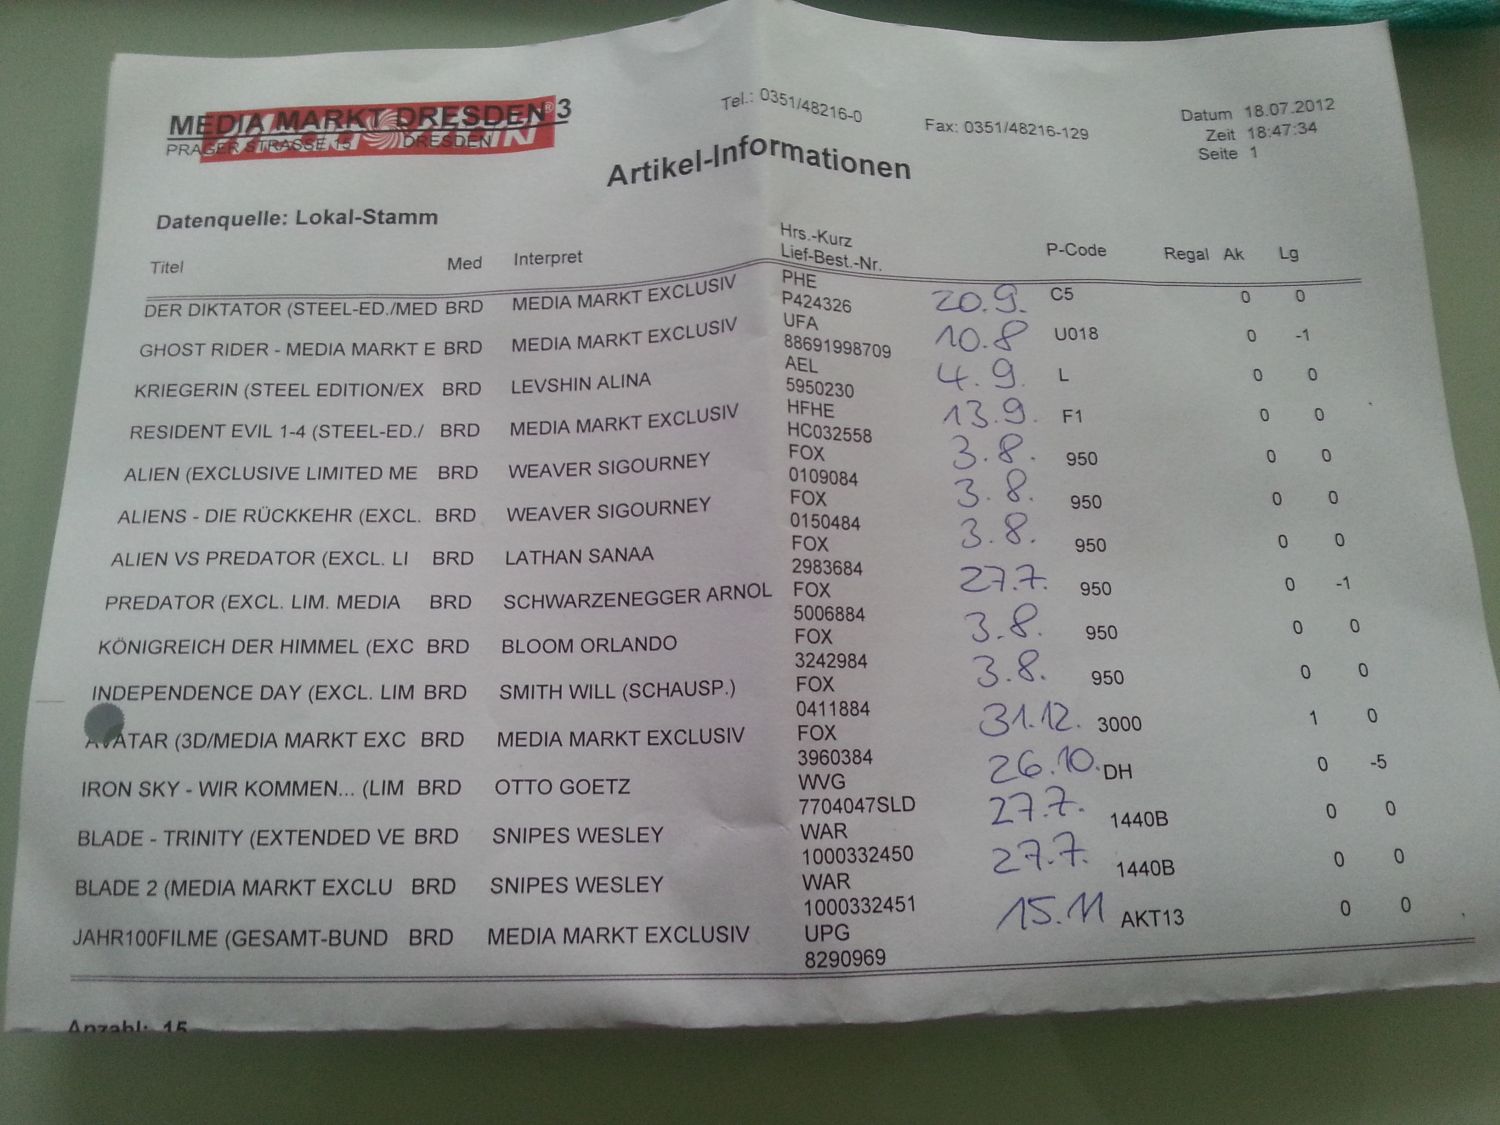 MEDIA MARKT DRESDEN 3
PRAGER STRASSE 15 DRESDEN
Tel.: 0351/48216-0
Fax: 0351/48216-129
Datum 18.07.2012
Zeit 18:47:34
Seite 1
Artikel-Informationen
Datenquelle: Lokal-Stamm
Titel Med Interpret Hrs.-Kurz P-Code Regal Ak Lg
Lief-Best.-Nr.
DER DIKTATOR (STEEL-ED./MED BRD MEDIA MARKT EXCLUSIV PHE 20.9. C5 0 0
P424326
GHOST RIDER - MEDIA MARKT E BRD MEDIA MARKT EXCLUSIV UFA 10.8 U018 0 -1
88691998709
KRIEGERIN (STEEL EDITION/EX BRD LEVSHIN ALINA AEL 4.9. L 0 0
5950230
RESIDENT EVIL 1-4 (STEEL-ED./ BRD MEDIA MARKT EXCLUSIV HFHE 13.9. F1 0 0
HC032558
ALIEN (EXCLUSIVE LIMITED ME BRD WEAVER SIGOURNEY FOX 3.8. 950 0 0
0109084
ALIENS - DIE RÜCKKEHR (EXCL. BRD WEAVER SIGOURNEY FOX 3.8. 950 0 0
0150484
ALIEN VS PREDATOR (EXCL. LI BRD LATHAN SANAA FOX 3.8. 950 0 0
2983684
PREDATOR (EXCL. LIM. MEDIA BRD SCHWARZENEGGER ARNOL FOX 27.7. 950 0 -1
5006884
KÖNIGREICH DER HIMMEL (EXC BRD BLOOM ORLANDO FOX 3.8. 950 0 0
3242984
INDEPENDENCE DAY (EXCL. LIM BRD SMITH WILL (SCHAUSP.) FOX 3.8. 950 0 0
0411884
AVATAR (3D/MEDIA MARKT EXC BRD MEDIA MARKT EXCLUSIV FOX 31.12. 3000 1 0
3960384
IRON SKY - WIR KOMMEN... (LIM BRD OTTO GOETZ WVG 26.10. DH 0 -5
7704047SLD
BLADE - TRINITY (EXTENDED VE BRD SNIPES WESLEY WAR 27.7. 1440B 0 0
1000332450
BLADE 2 (MEDIA MARKT EXCLU BRD SNIPES WESLEY WAR 27.7. 1440B 0 0
1000332451
JAHR100FILME (GESAMT-BUND BRD MEDIA MARKT EXCLUSIV UPG 15.11 AKT13 0 0
8290969
Anzahl: 15